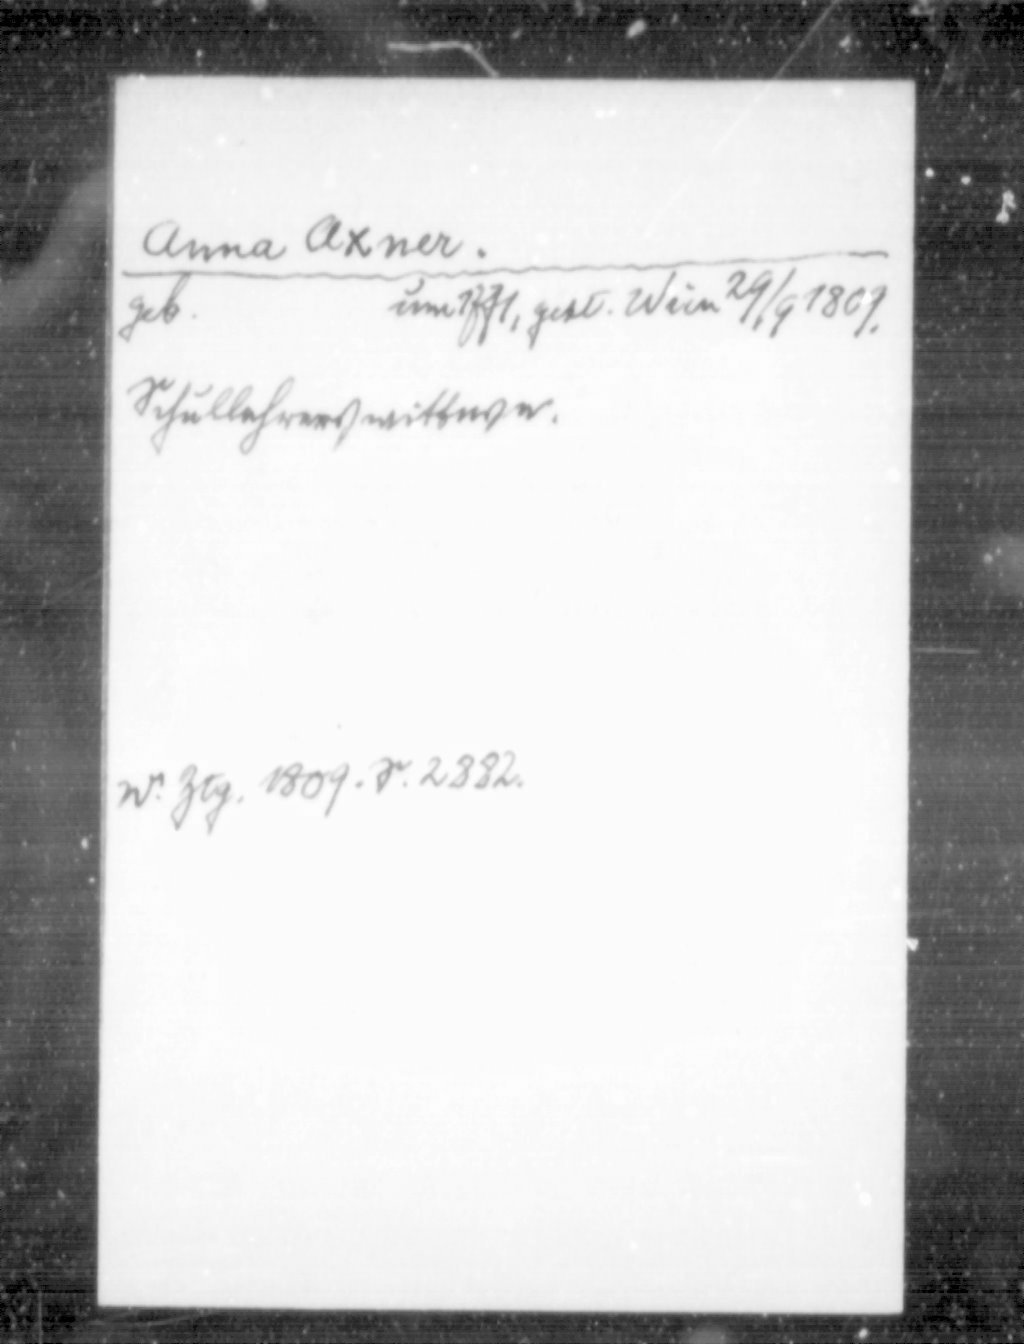 Anna Axner.
geb. um 1771, gest. Wien 29/9 1809.
Schullehrerswittwe.
W. Ztg. 1809. S. 2882.